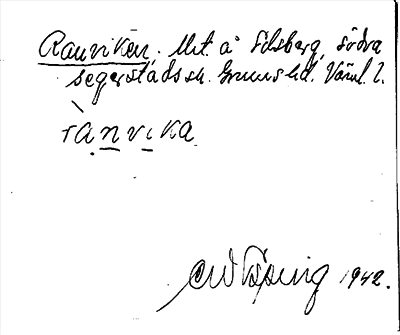 Ranviken. Utt. å Edsberg, södra
Segerstads sn. Grums hd. Värml. l.
ranvika
CW Köping 1942.